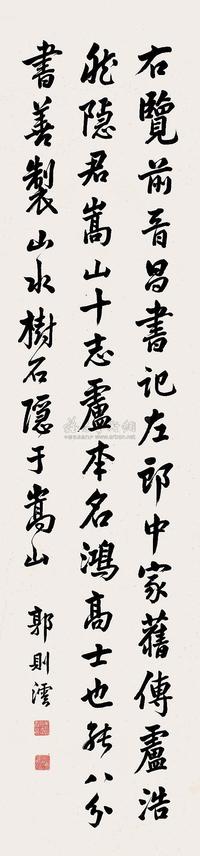 右覽前晉昌書記左郎中家舊傳盧浩
然隱君嵩山十志盧本名鴻高士也能八分
書善製山水樹石隱于嵩山
郭則澐